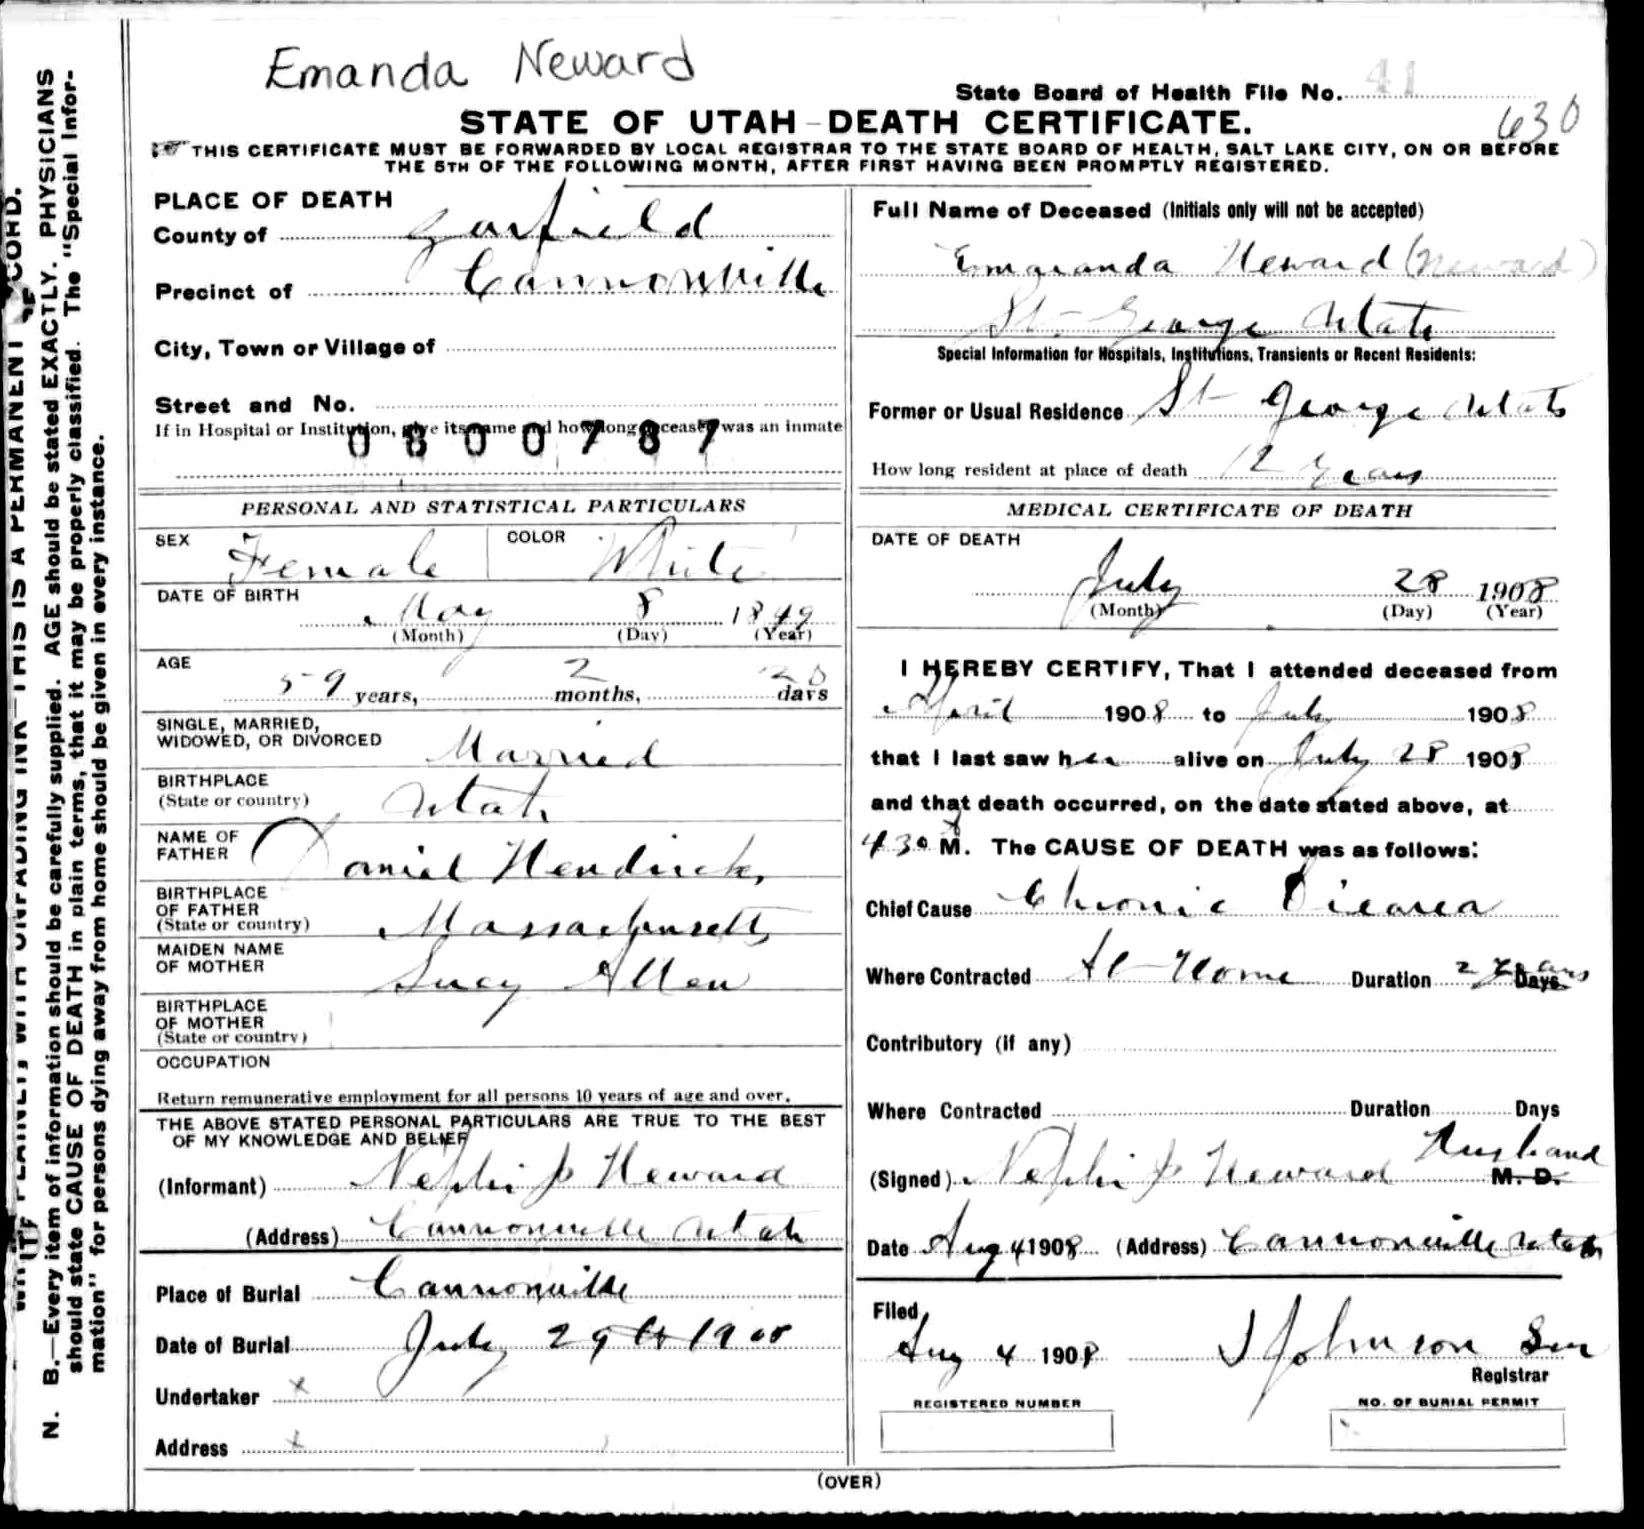 Emanda Neward
State Board of Health File No. 41
630
STATE OF UTAH - DEATH CERTIFICATE.
THIS CERTIFICATE MUST BE FORWARDED BY LOCAL REGISTRAR TO THE STATE BOARD OF HEALTH, SALT LAKE CITY, ON OR BEFORE
THE 5TH OF THE FOLLOWING MONTH, AFTER FIRST HAVING BEEN PROMPTLY REGISTERED.
PLACE OF DEATH
County of Garfield
Precinct of Cannonville
City, Town or Village of
Street and No.
If in Hospital or Institution, give its name and how long deceased was an inmate
0800787
PERSONAL AND STATISTICAL PARTICULARS
SEX Female COLOR White
DATE OF BIRTH
May 8 1849
(Month) (Day) (Year)
AGE
59 years, 2 months, 20 days
SINGLE, MARRIED,
WIDOWED, OR DIVORCED Married
BIRTHPLACE
(State or country) Utah
NAME OF
FATHER Daniel Hendricks
BIRTHPLACE
OF FATHER
(State or country) Massachusetts
MAIDEN NAME
OF MOTHER Lucy Allen
BIRTHPLACE
OF MOTHER
(State or country)
OCCUPATION
Return remunerative employment for all persons 10 years of age and over.
THE ABOVE STATED PERSONAL PARTICULARS ARE TRUE TO THE BEST
OF MY KNOWLEDGE AND BELIEF
(Informant) Nephi J Heward
(Address) Cannonville Utah
Place of Burial Cannonville
Date of Burial July 29th 1908
Undertaker x
Address x
Full Name of Deceased (Initials only will not be accepted)
Emaranda Heward (Neward)
St-George Utah
Special Information for Hospitals, Institutions, Transients or Recent Residents:
Former or Usual Residence St George Utah
How long resident at place of death 12 Years
MEDICAL CERTIFICATE OF DEATH
DATE OF DEATH
July 28 1908
(Month) (Day) (Year)
I HEREBY CERTIFY, That I attended deceased from
April 1908 to July 1908
that I last saw her alive on July 28 1908
and that death occurred, on the date stated above, at
430 M. The CAUSE OF DEATH was as follows:
Chief Cause Chronic Diearea
Where Contracted At-Home Duration 2 Years Days
Contributory (if any)
Where Contracted Duration Days
Husband
(Signed) Nephi J Heward M. D.
Date Aug 4 1908 (Address) Cannonville Utah
Filed
Aug 4 1908 J Johnson Sen
Registrar
REGISTERED NUMBER NO. OF BURIAL PERMIT
(OVER)
WRITE PLAINLY WITH UNFADING INK—THIS IS A PERMANENT RECORD.
N. B.—Every item of information should be carefully supplied. AGE should be stated EXACTLY. PHYSICIANS
should state CAUSE OF DEATH in plain terms, that it may be properly classified. The "Special Infor-
mation" for persons dying away from home should be given in every instance.